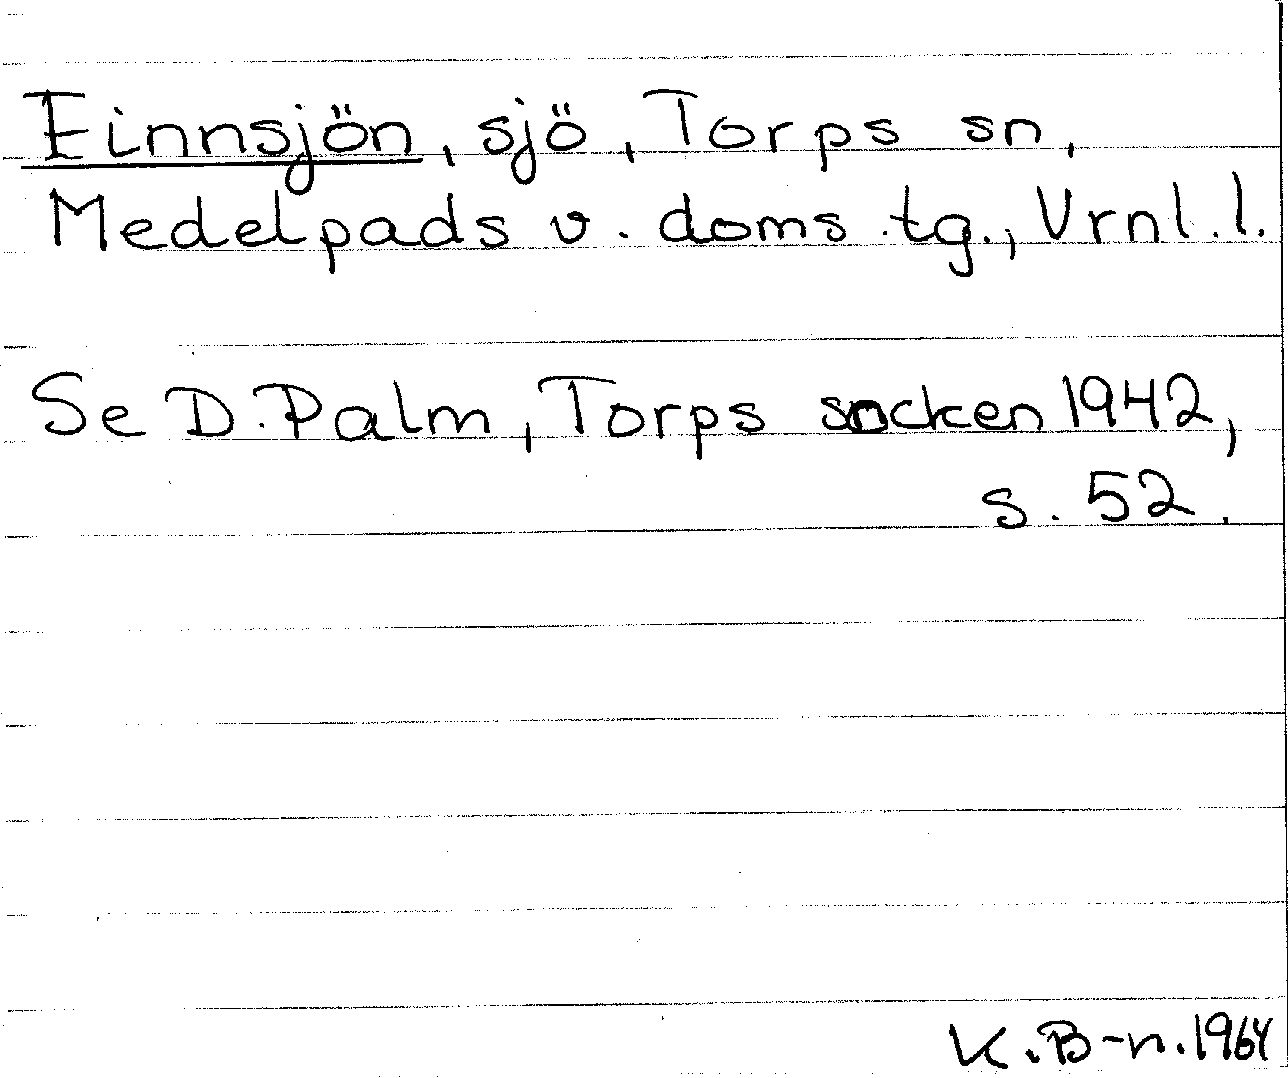 Finnsjön, sjö, Torps sn,
Medelpads v. doms.tg., Vrnl.l.
Se D. Palm, Torps socken 1942,
s. 52.
K.B-n. 1964